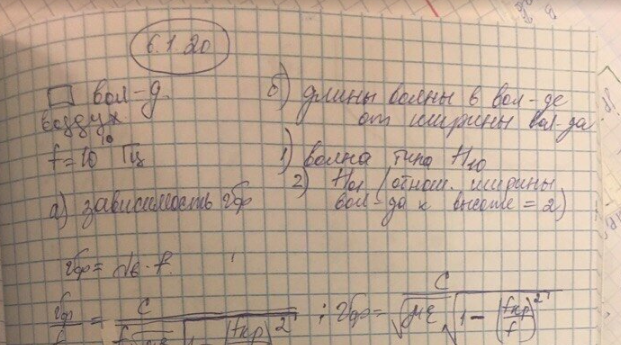 6.1.20
□ вол-д
воздух
f = 10¹⁰ Гц
а) зависимость vф
б) длины волны в вол-де
от ширины вол-да
1) волна типа H₁₀
2) H₀₁ (отнош. ширины
вол-да к высоте = 2)
vф = λв · f.
vф = c / (√με √(1 - (fкр/f)²))